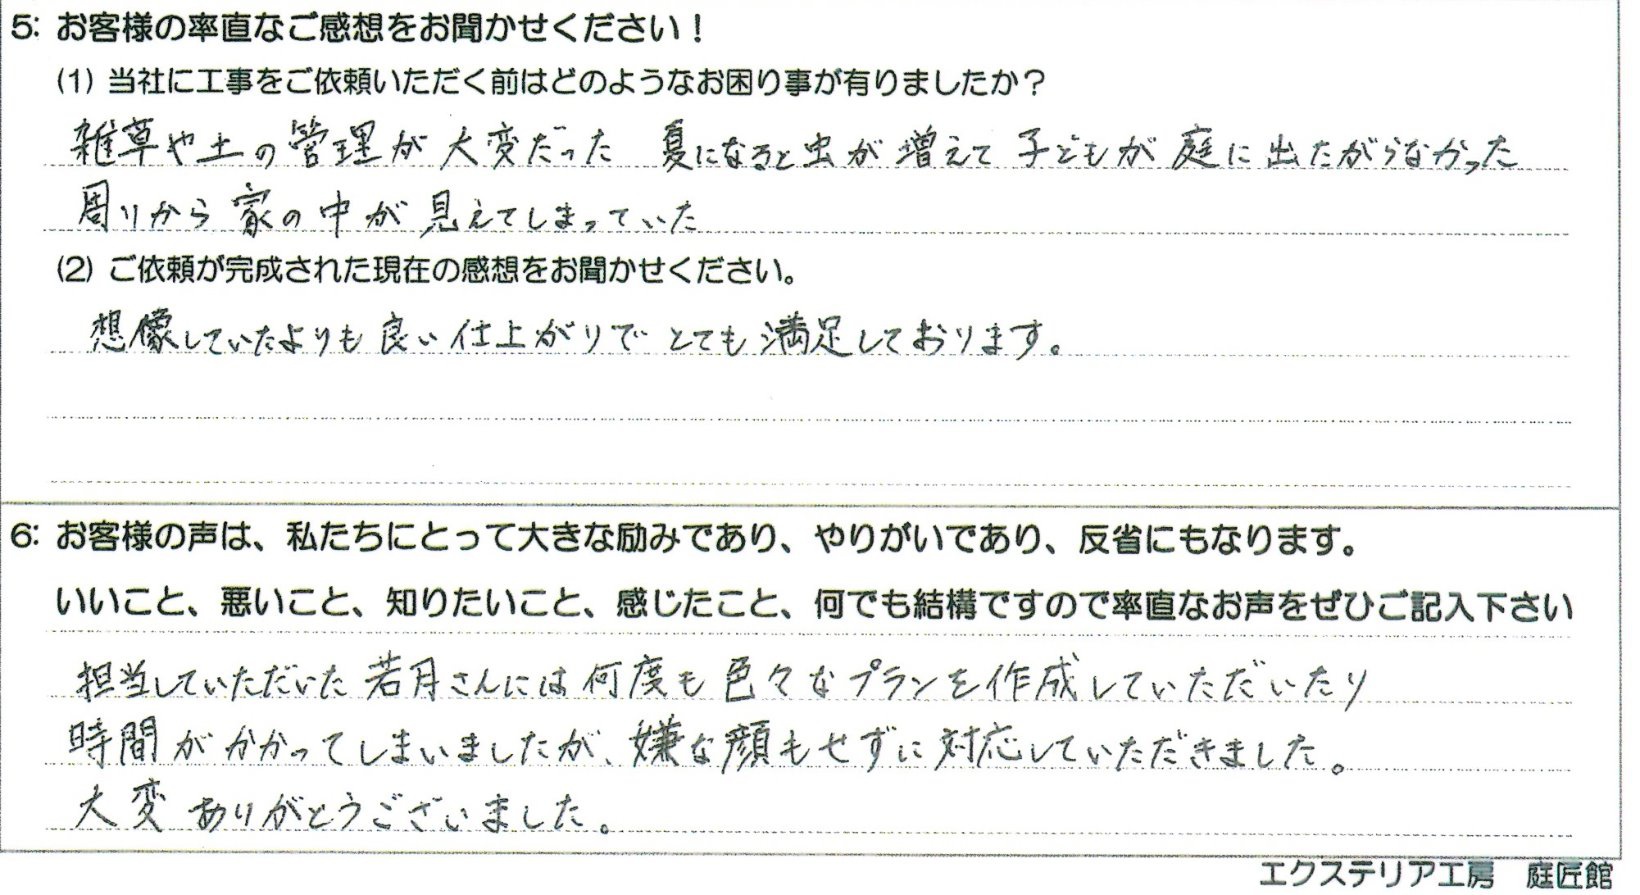 5: お客様の率直なご感想をお聞かせください！
(1) 当社に工事をご依頼いただく前はどのようなお困り事が有りましたか？
雑草や土の管理が大変だった 夏になると虫が増えて子どもが庭に出たがらなかった
周りから家の中が見えてしまっていた
(2) ご依頼が完成された現在の感想をお聞かせください。
想像していたよりも良い仕上がりでとても満足しております。
6: お客様の声は、私たちにとって大きな励みであり、やりがいであり、反省にもなります。
いいこと、悪いこと、知りたいこと、感じたこと、何でも結構ですので率直なお声をぜひご記入下さい
担当していただいた若月さんには何度も色々なプランを作成していただいたり
時間がかかってしまいましたが、嫌な顔もせずに対応していただきました。
大変ありがとうございました。
エクステリア工房 庭匠館